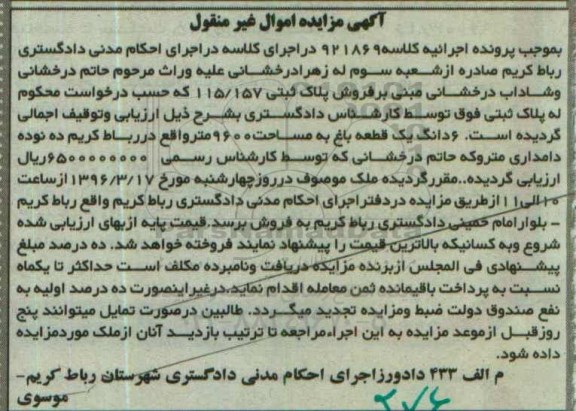 آگهی مزایده اموال غیر منقول
بموجب پرونده اجرائیه کلاسه۹۲۱۸۶۹ دراجرای کلاسه دراجرای احکام مدنی دادگستری
رباط کریم صادره ازشعبه سوم له زهرادرخشانی علیه وراث مرحوم حاتم درخشانی
وشاداب درخشانی مبنی برفروش پلاک ثبتی ۱۱۵/۱۵۷ که حسب درخواست محکوم
له پلاک ثبتی فوق توسط کارشناس دادگستری بشرح ذیل ارزیابی وتوقیف اجمالی
گردیده است. ۶دانگ یک قطعه باغ به مساحت۹۶۰۰مترواقع دررباط کریم ده نوده
دامداری متروکه حاتم درخشانی که توسط کارشناس رسمی ۶۵۰۰۰۰۰۰۰۰۰ریال
ارزیابی گردیده..مقررگردیده ملک موصوف درروزچهارشنبه مورخ ۱۳۹۶/۳/۱۷ازساعت
۱۰الی۱۱ازطریق مزایده دردفتراجرای احکام مدنی دادگستری رباط کریم واقع رباط کریم
- بلوارامام خمینی دادگستری رباط کریم به فروش برسد.قیمت پایه ازبهای ارزیابی شده
شروع وبه کسانیکه بالاترین قیمت را پیشنهاد نمایند فروخته خواهد شد. ده درصد مبلغ
پیشنهادی فی المجلس ازبرنده مزایده دریافت ونامبرده مکلف است حداکثر تا یکماه
نسبت به پرداخت باقیمانده ثمن معامله اقدام نماید.درغیراینصورت ده درصد اولیه به
نفع صندوق دولت ضبط ومزایده تجدید میگردد. طالبین درصورت تمایل میتوانند پنج
روزقبل ازموعد مزایده به این اجراءمراجعه تا ترتیب بازدید آنان ازملک موردمزایده
داده شود.
م الف ۴۳۳ دادورزاجرای احکام مدنی دادگستری شهرستان رباط کریم-
موسوی